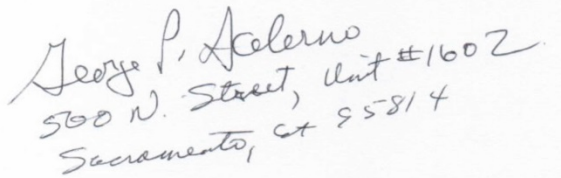 George P. Acalerno
500 N. Street, Unit #1602
Sacramento, CA 95814